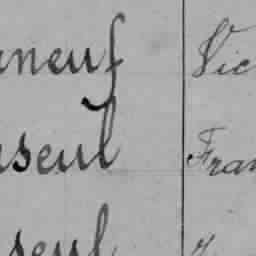 neuf Vic
seul Fran
seul